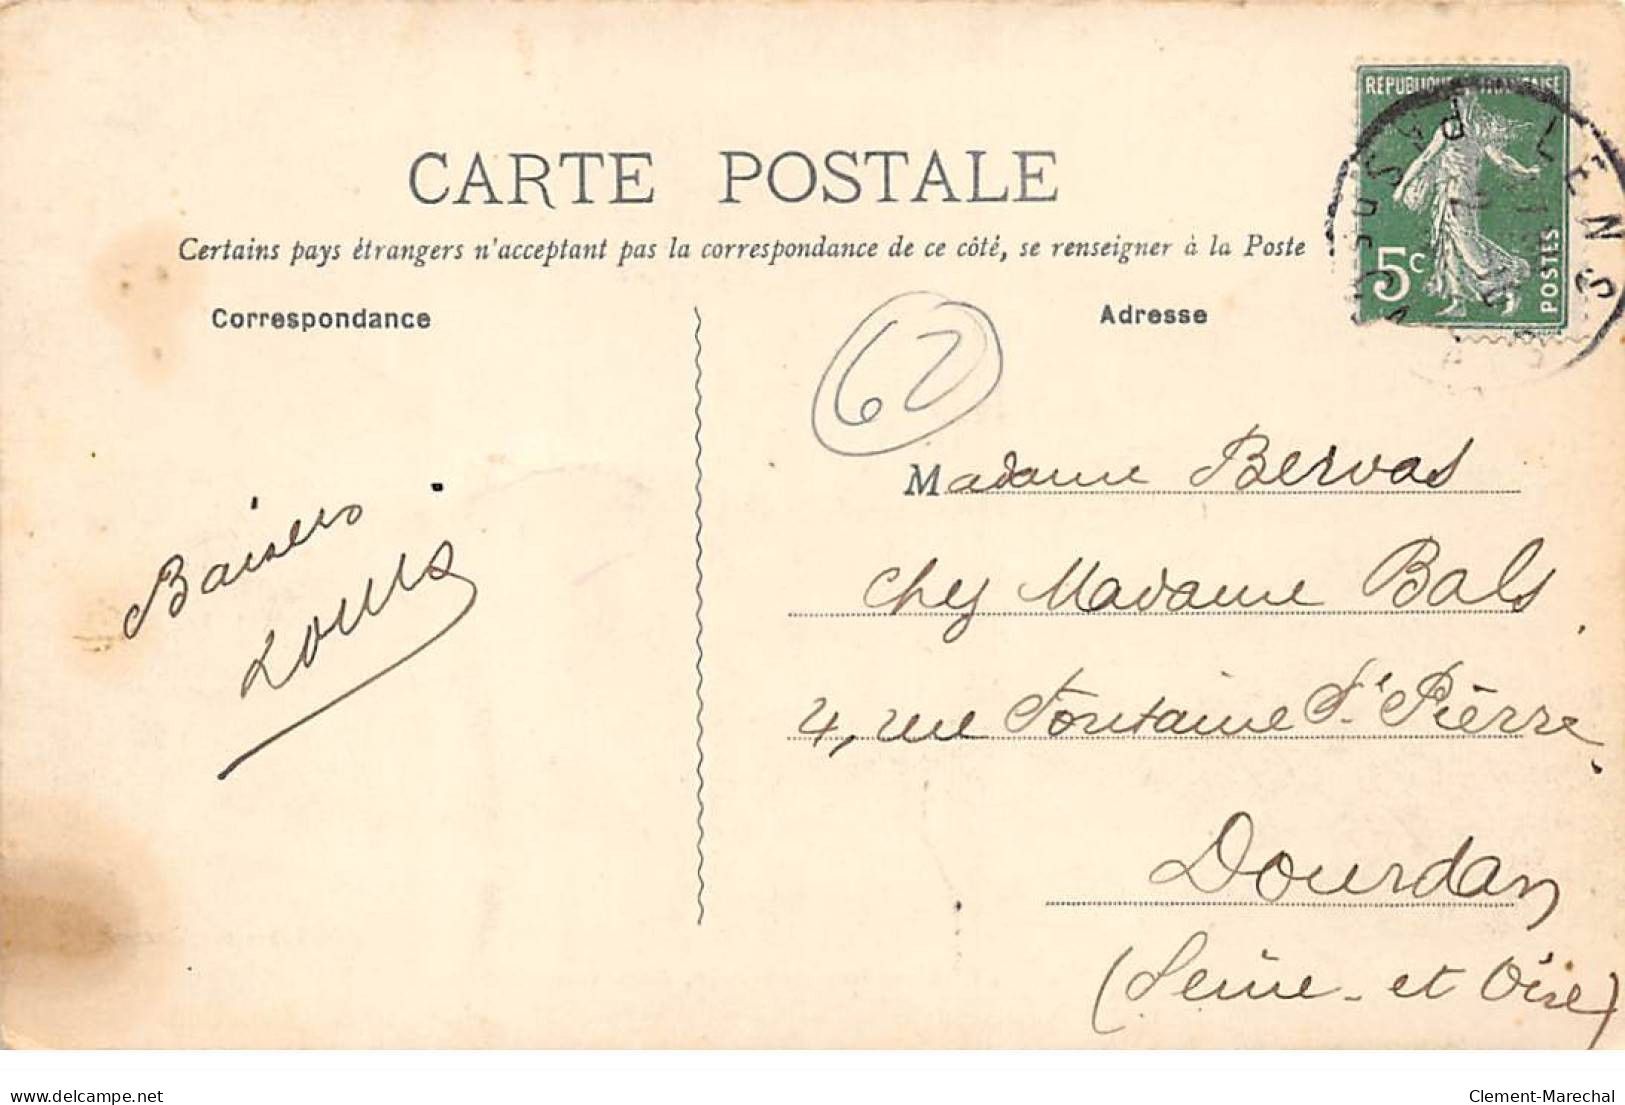 REPUBLIQUE FRANÇAISE
5c
POSTES
LENS
CARTE POSTALE
Certains pays étrangers n'acceptant pas la correspondance de ce côté, se renseigner à la Poste
Correspondance
Adresse
62
Baisers
Louis
Madame Bervas
chez Madame Bals
4, rue Fontaine St Pierre
Dourdan
(Seine-et Oise)
delcampe.net
Clement-Marechal